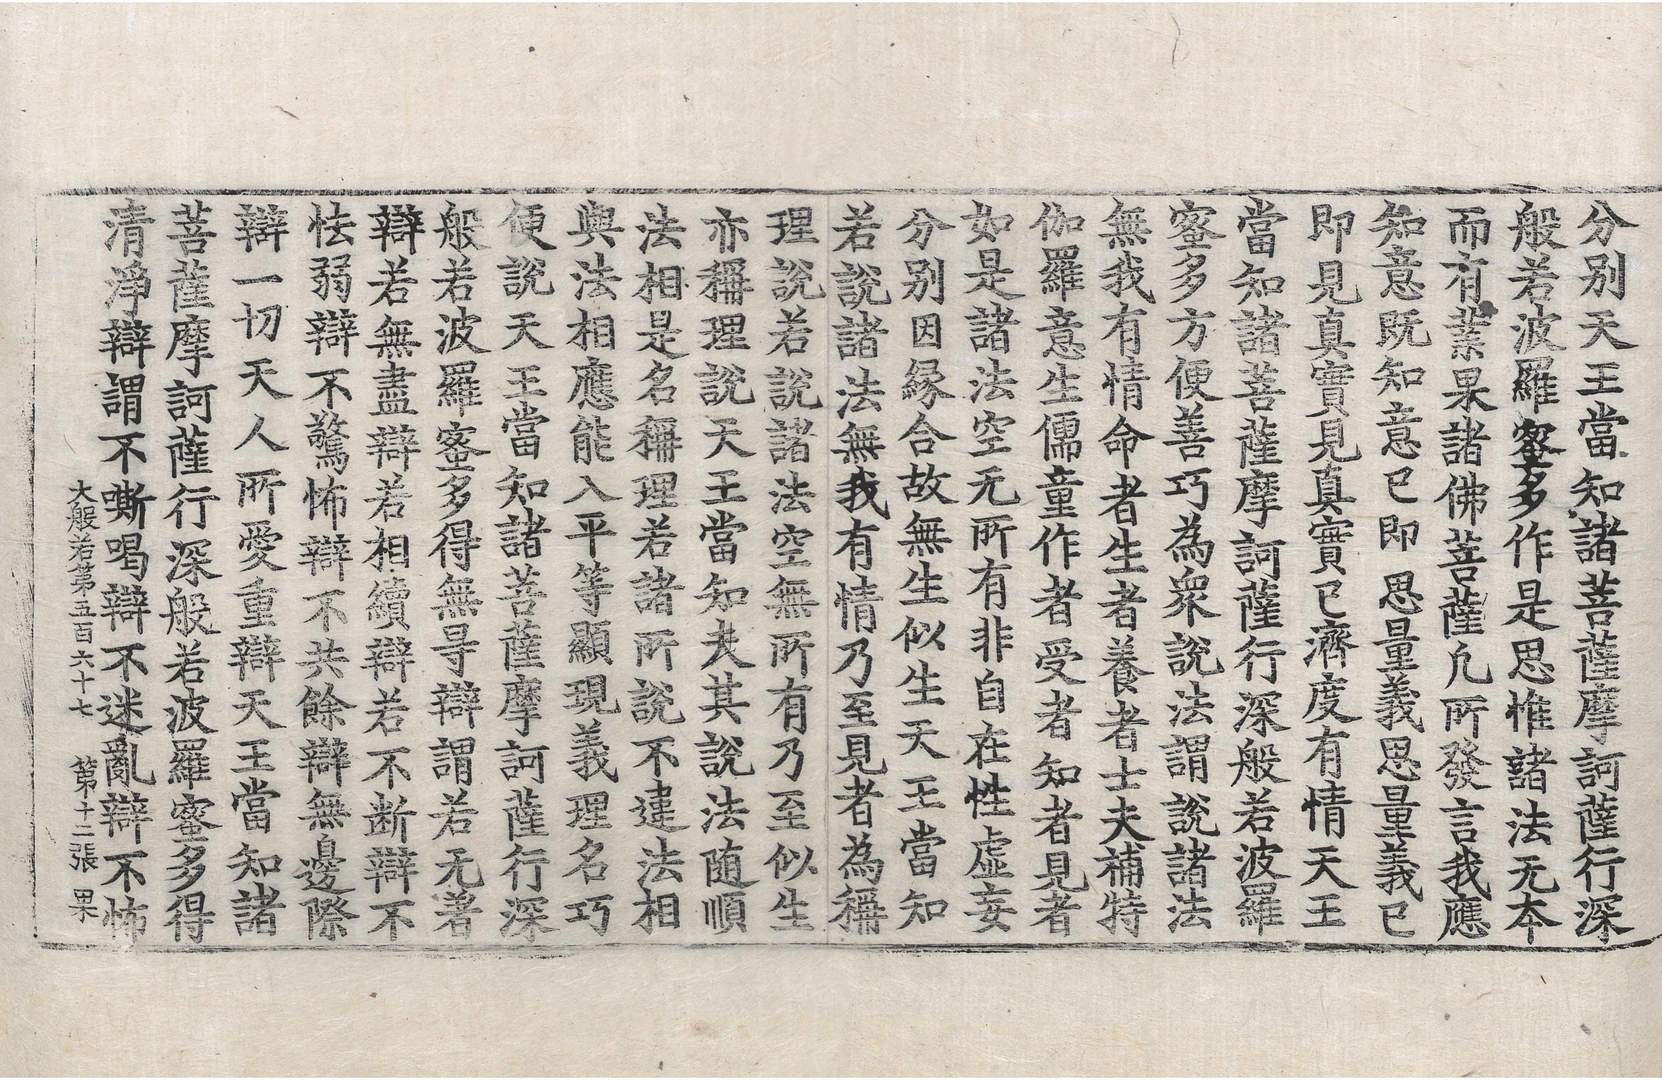 分別天王當知諸菩薩摩訶薩行深
般若波羅蜜多作是思惟諸法无夲
而有業果諸佛菩薩凡所發言我應
知意既知意已即思量義思量義已
即見真實見真實已濟度有情天王
當知諸菩薩摩訶薩行深般若波羅
蜜多方便善巧為衆說法謂說諸法
無我有情命者生者養者士夫補特
伽羅意生儒童作者受者知者見者
如是諸法空无所有非自在性虛妄
分別因緣合故無生似生天王當知
若說諸法無我有情乃至見者為稱
理說若說諸法空無所有乃至似生
亦稱理說天王當知夫其說法随順
法相是名稱理若諸所說不違法相
與法相應能入平等顯現義理名巧
便說天王當知諸菩薩摩訶薩行深
般若波羅蜜多得無㝵辯謂若无著
辯若無盡辯若相續辯若不断辯不
怯弱辯不驚怖辯不共餘辯無邊際
辯一切天人所愛重辯天王當知諸
菩薩摩訶薩行深般若波羅蜜多得
清淨辯謂不嘶喝辯不迷亂辯不怖
大般若第五百六十七 第十二張 果